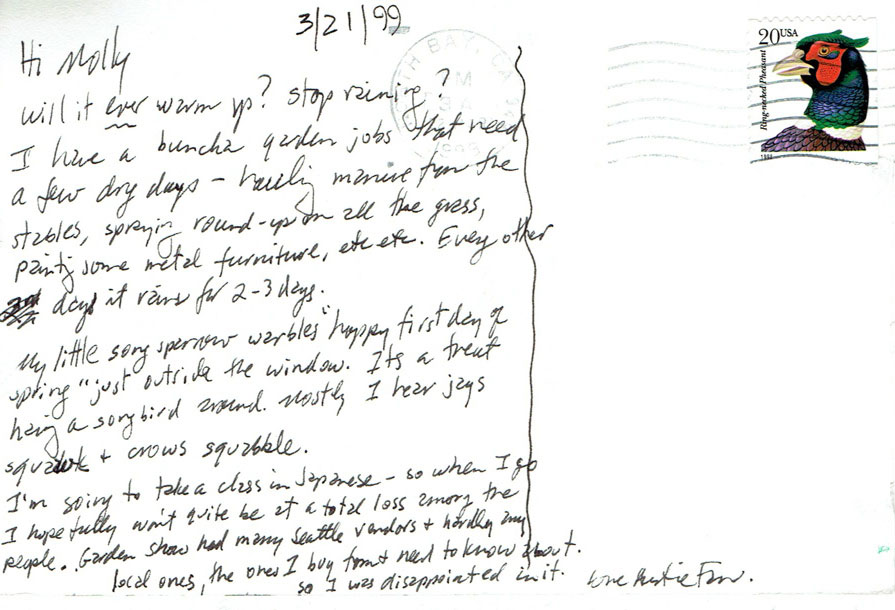 3/21/99
Hi Molly
will it ever warm up? stop raining?
I have a buncha garden jobs that need
a few dry days – hauling manure from the
stables, spraying round-up on all the grass,
painting some metal furniture, etc etc. Every other
days it rains for 2-3 days.
My little song sparrow warbles "happy first day of
spring" just outside the window. Its a treat
having a songbird around. Mostly I hear jays
squawk + crows squabble.
I'm going to take a class in Japanese – so when I go
I hopefully won't quite be at a total loss among the
people. Garden show had many Seattle vendors + hardly any
local ones, the ones I buy from + need to know about.
so I was disappointed in it. Love
20 USA
Ring-necked Pheasant
1998
BAY, CA